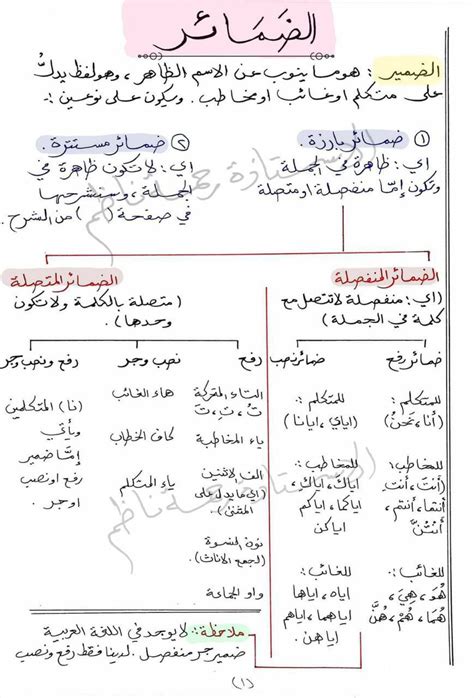 الضَمَائر
الضمير : هو ما ينوب عن الاسم الظاهر ، وهو لفظ يدلُّ
على متكلم او غائب او مخاطب . ويكون على نوعين :
① ضمائر بارزة .
اي : ظاهرة في الجملة
وتكون إمّا منفصلة او متصلة
② ضمائر مستترة :
اي : لا تكون ظاهرة في
الجملة ، وسنشرحها
في صفحة ( ) من الشرح .
الضمائر المنفصلة
(اي : منفصلة لا تتصل مع
كلمة في الجملة)
ضمائر رفع
للمتكلم :
(أنا ، نَحنُ)
للمخاطب :
(أنتَ ، أنتِ
أنتما ، أنتم ،
أنتُنَّ)
للغائب :
هُوَ ، هِيَ ،
هُمَا ، هُمْ ، هُنَّ
ضمائر نصب
للمتكلم :
(اياي ، ايانا)
للمخاطب :
اياكَ ، اياكِ
اياكما ، اياكم
اياكن
للغائب :
اياه ، اياها
اياهما ، اياهم
اياهن .
الضمائر المتصلة
(متصلة بالكلمة ولا تكون
وحدها) .
رفع
التاء المتحركة
تُ ، تِ ، تَ
ياء المخاطبة
الف الاثنين
(اي ما يدل على
المثنى)
نون النسوة
(لجمع الاناث) .
واو الجماعة
نصب وجر
هاء الغائب
كاف الخطاب
ياء المتكلم
رفع ونصب وجر
(نا) المتكلمين
ويأتي
إمّا ضمير
رفع او نصب
او جر .
ملاحظة : لا يوجد في اللغة العربية
ضمير جر منفصل . لدينا فقط رفع ونصب
(١)